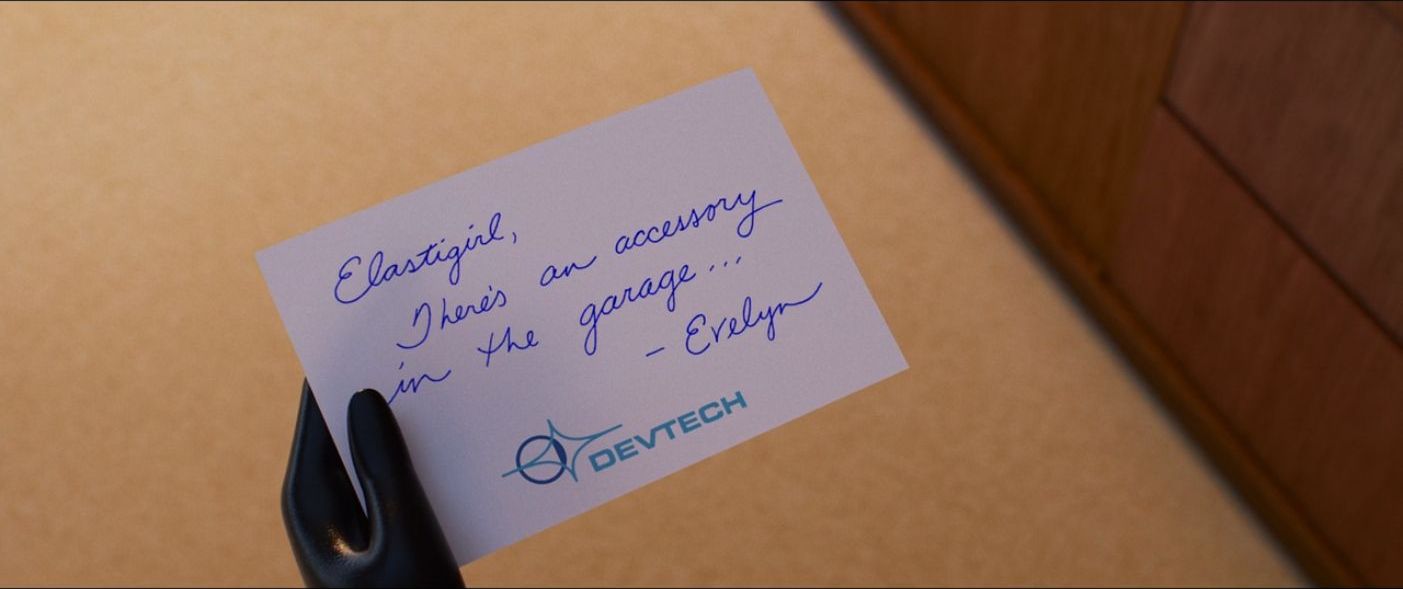 Elastigirl,
There's an accessory
in the garage...
- Evelyn
DEVTECH